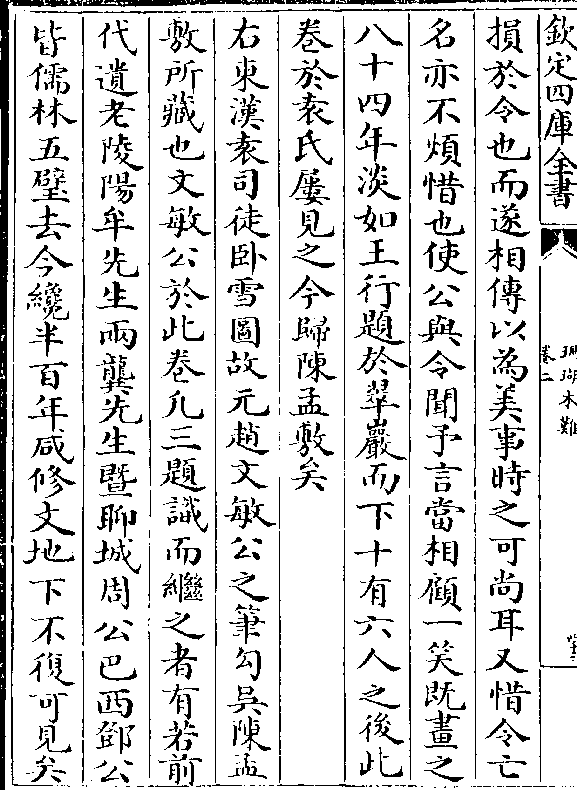 欽定四庫全書
珊瑚木難
卷二
損於令也而遂相傳以為美事時之可尚耳又惜令亡
名亦不煩惜也使公與令聞予言當相顧一笑既畫之
八十四年淡如王行題於翠巖而下十有六人之後此
卷於袁氏屢見之今歸陳孟敷矣
右東漢袁司徒卧雪圖故元趙文敏公之筆勾吳陳孟
敷所藏也文敏公於此卷凡三題識而繼之者有若前
代遺老陵陽牟先生兩龔先生暨聊城周公巴西鄧公
皆儒林五璧去今纔半百年咸修文地下不復可見矣